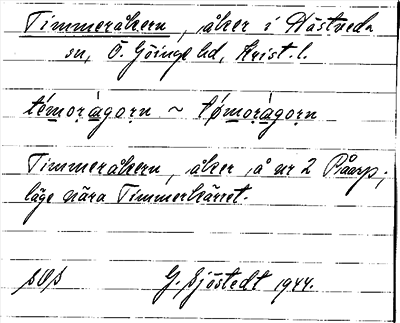 Timmeråkern, åker i Hästveda
sn, Ö. Göinge hd, Krist. l.
témorágorn ~ tímorágorn
Timmeråkern, åker å nr 2 Råarp,
läge nära Timmerkärret.
G. Sjöstedt 1944.